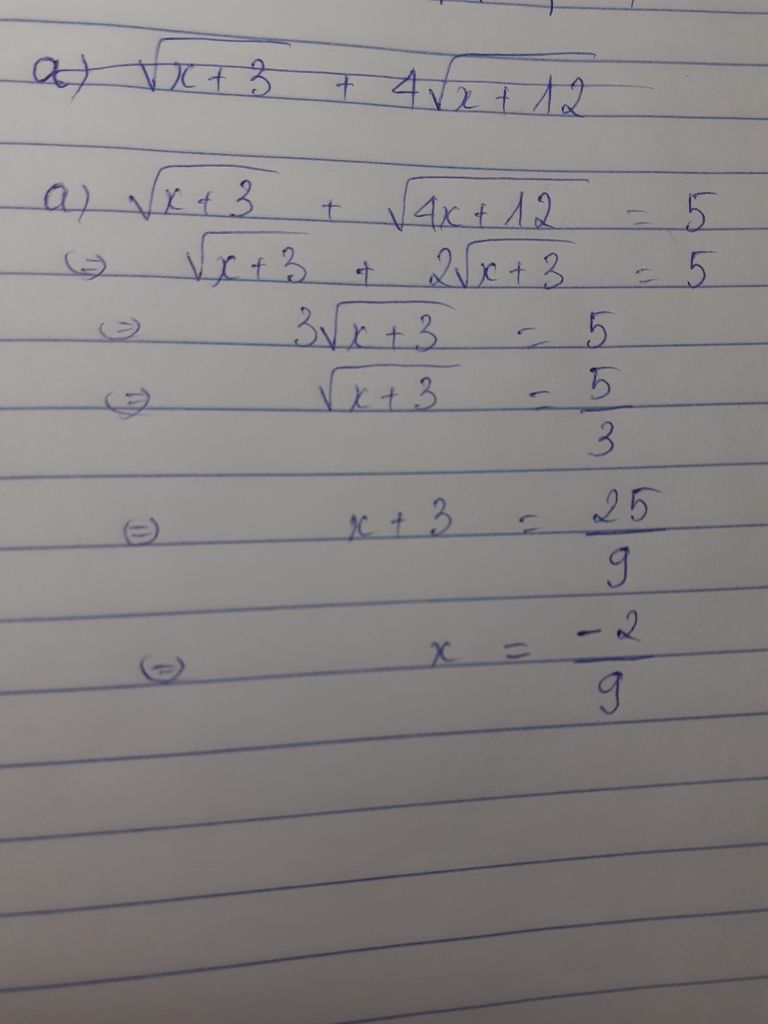 a) √x+3 + 4√x+12
a) √x+3 + √4x+12 = 5
(=) √x+3 + 2√x+3 = 5
(=) 3√x+3 = 5
(=) √x+3 = 5/3
(=) x+3 = 25/9
(=) x = -2/9